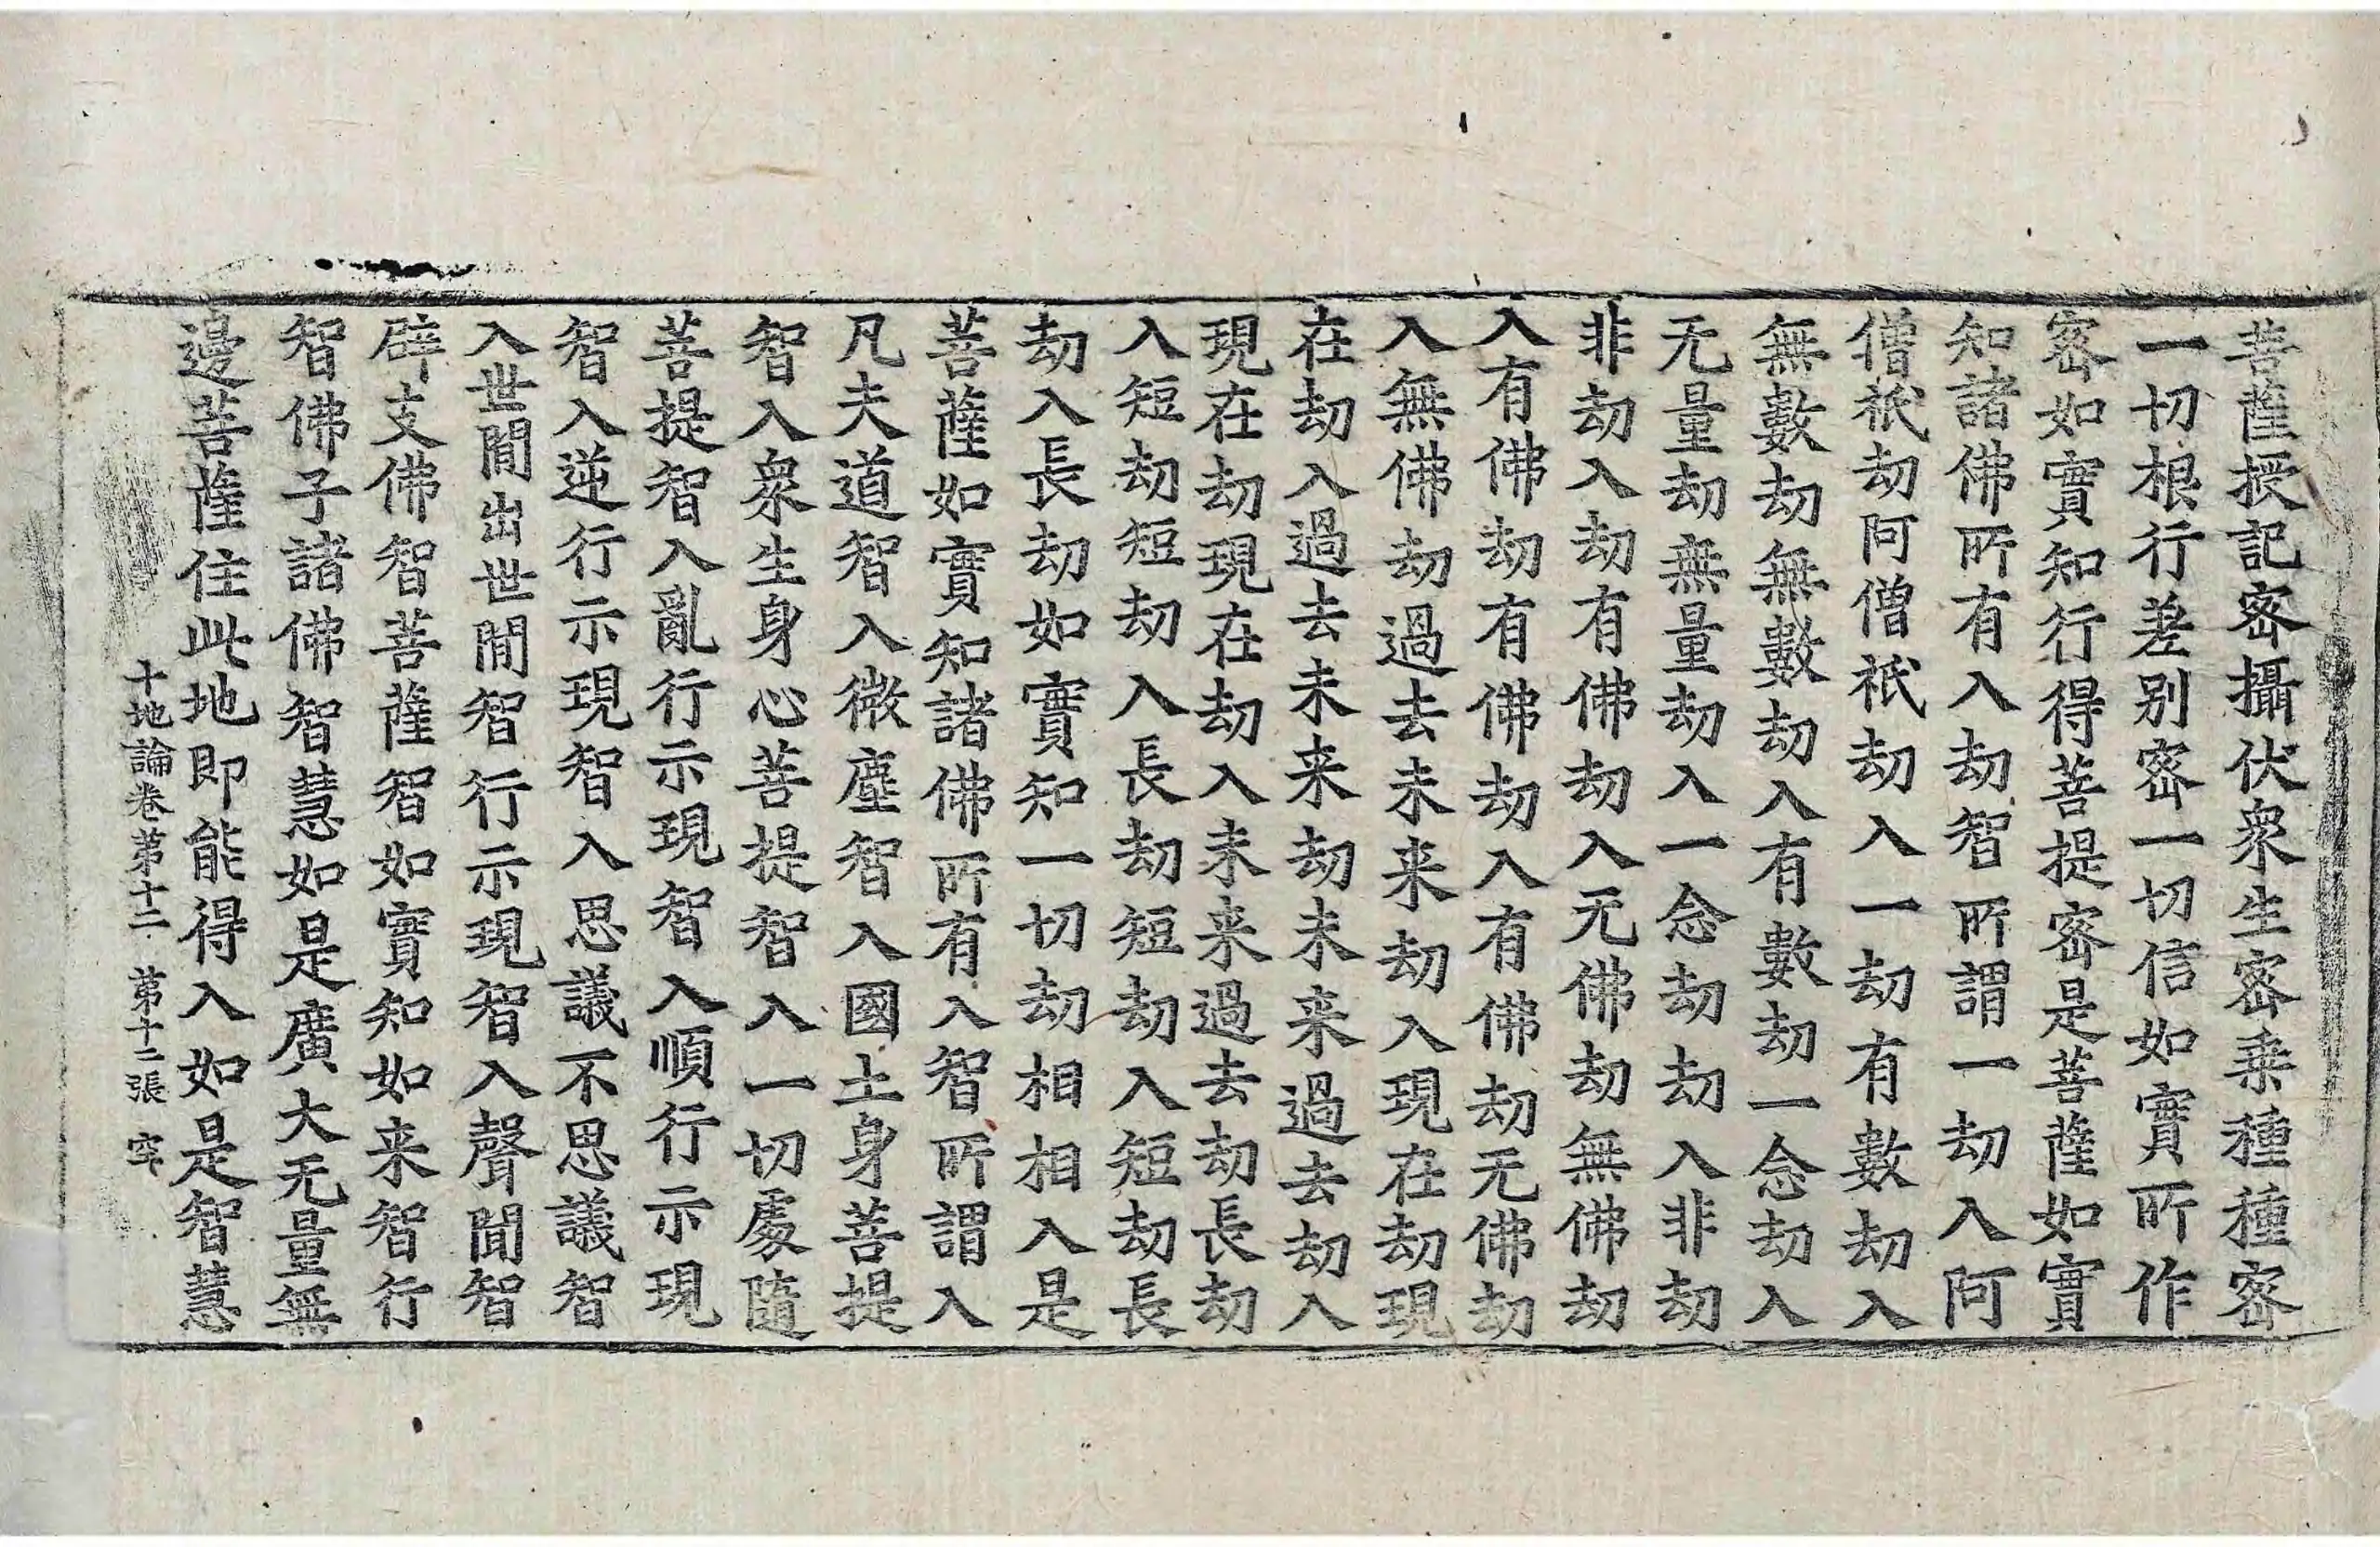 菩薩授記密攝伏衆生密乗種種密
一切根行差别密一切信如實所作
密如實知行得菩提密是菩薩如實
知諸佛所有入劫智所謂一劫入阿
僧祇劫阿僧祇劫入一劫有數劫入
無數劫無數劫入有數劫一念劫入
无量劫無量劫入一念劫劫入非劫
非劫入劫有佛劫入无佛劫無佛劫
入有佛劫有佛劫入有佛劫无佛劫
入無佛劫過去未来劫入現在劫現
在劫入過去未来劫未来過去劫入
現在劫現在劫入未来過去劫長劫
入短劫短劫入長劫短劫入短劫長
劫入長劫如實知一切劫相相入是
菩薩如實知諸佛所有入智所謂入
凡夫道智入微塵智入國土身菩提
智入衆生身心菩提智入一切處隨
菩提智入亂行示現智入順行示現
智入逆行示現智入思議不思議智
入世間出世間智行示現智入聲聞智
辟支佛智菩薩智如實知如来智行
智佛子諸佛智慧如是廣大无量無
邊菩薩住此地即能得入如是智慧
十地論卷第十二 第十二張